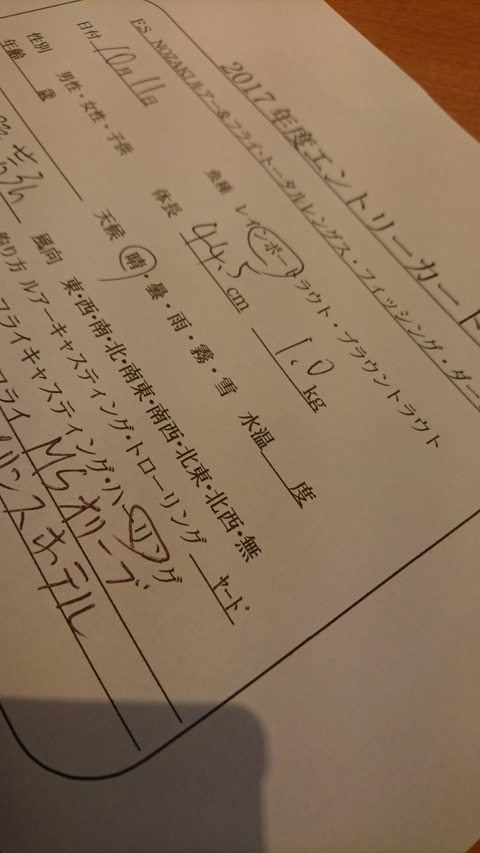 2017年度エントリーカード
F.S. NOZAKIルアー&フライ・トータルレングス・フィッシング・ダー
日付 10月11日 魚種 レインボートラウト・ブラウントラウト
性別 男性・女性・子供 体長 44.5cm 1.0kg
年齢 歳 天候 晴・曇・雨・霧・雪 水温 度
風向 東・西・南・北・南東・南西・北東・北西・無
釣り方 ルアーキャスティング・トローリング ヤード
フライキャスティング・ハーリング
フライ MSオリーブ
リンスホテル